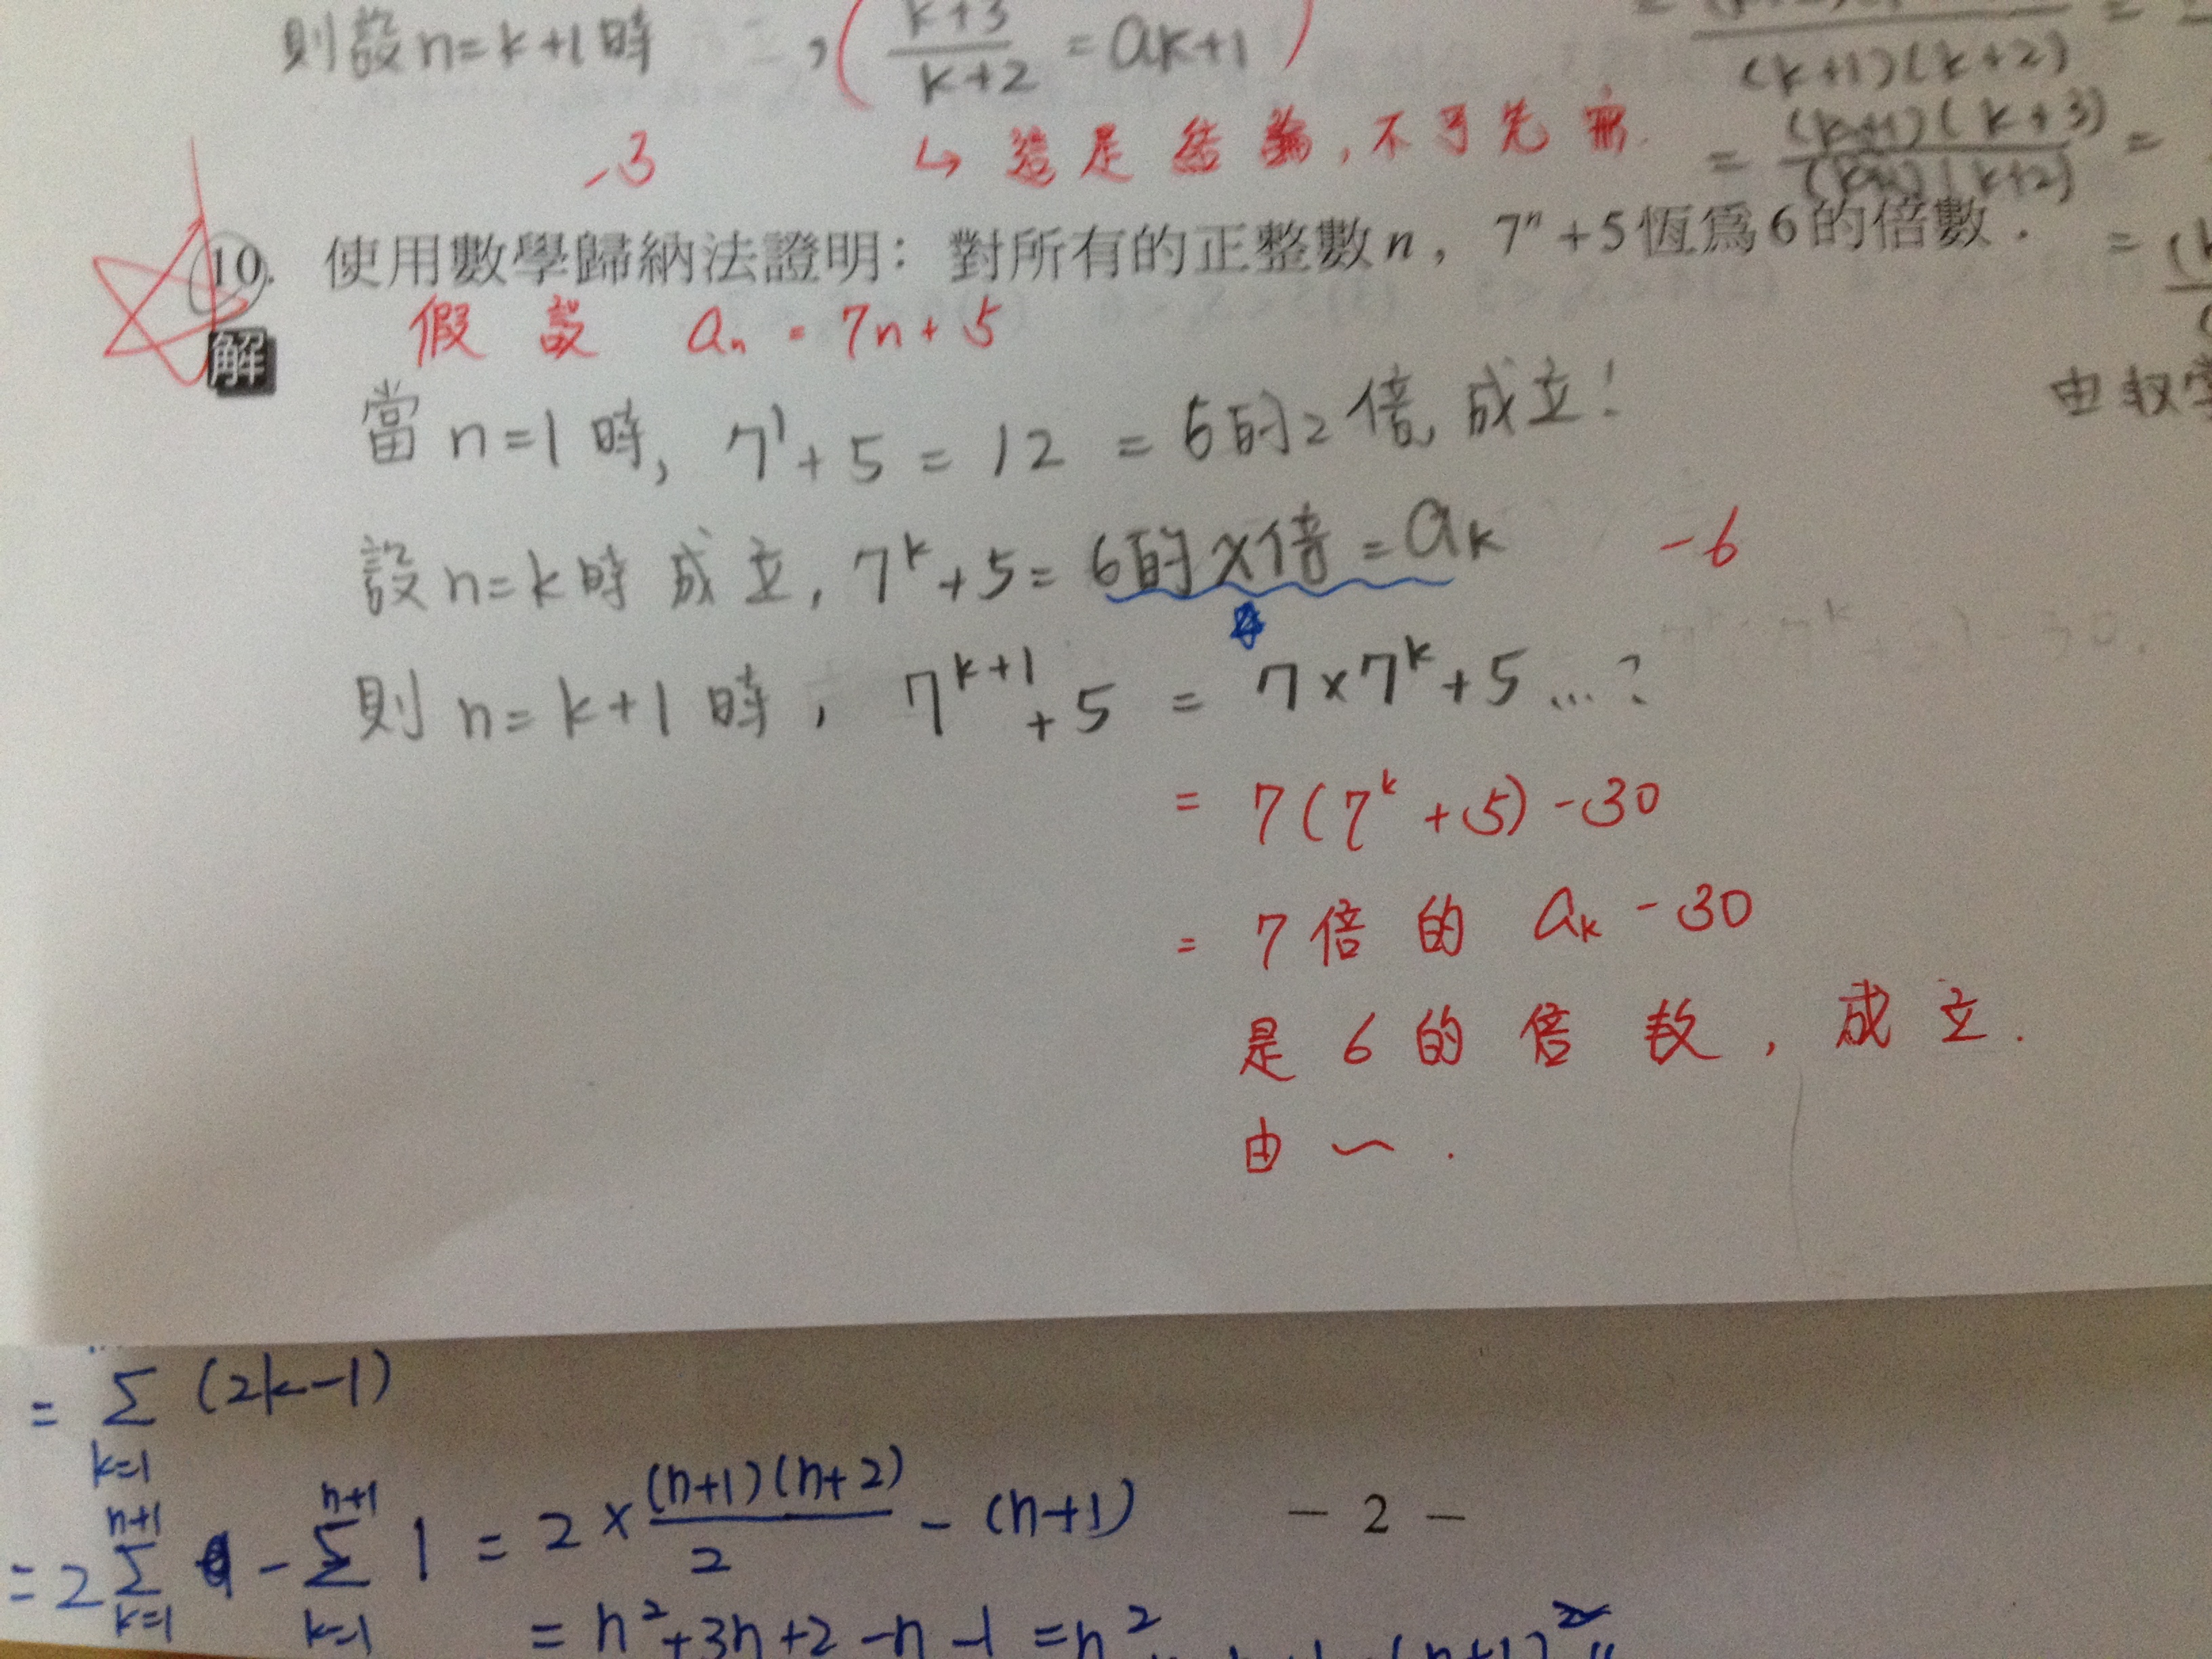 則設n=k+1時 , ( \frac{k+3}{k+2} = ak+1 )
(k+1)(k+2)
-3 ↳ 這是結論, 不可先寫.
= \frac{(k+1)(k+3)}{(k+1)(k+2)} =
10. 使用數學歸納法證明：對所有的正整數n，7^n+5恆為6的倍數．
解 假設 a_n = 7n+5
當n=1時, 7^1+5 = 12 = 6的2倍, 成立!
由數學
設n=k時成立, 7^k+5 = 6的x倍 = a_k -6
則n=k+1時, 7^{k+1}+5 = 7×7^k+5...?
= 7(7^k+5)-30
= 7倍的 a_k -30
是6的倍数, 成立.
由～.
= \sum_{k=1} (2k-1)
= 2\sum_{k=1}^{n+1} - \sum_{k=1}^{n+1} 1 = 2×\frac{(n+1)(n+2)}{2} - (n+1)
- 2 -
= n^2+3n+2-n-1 = n^2